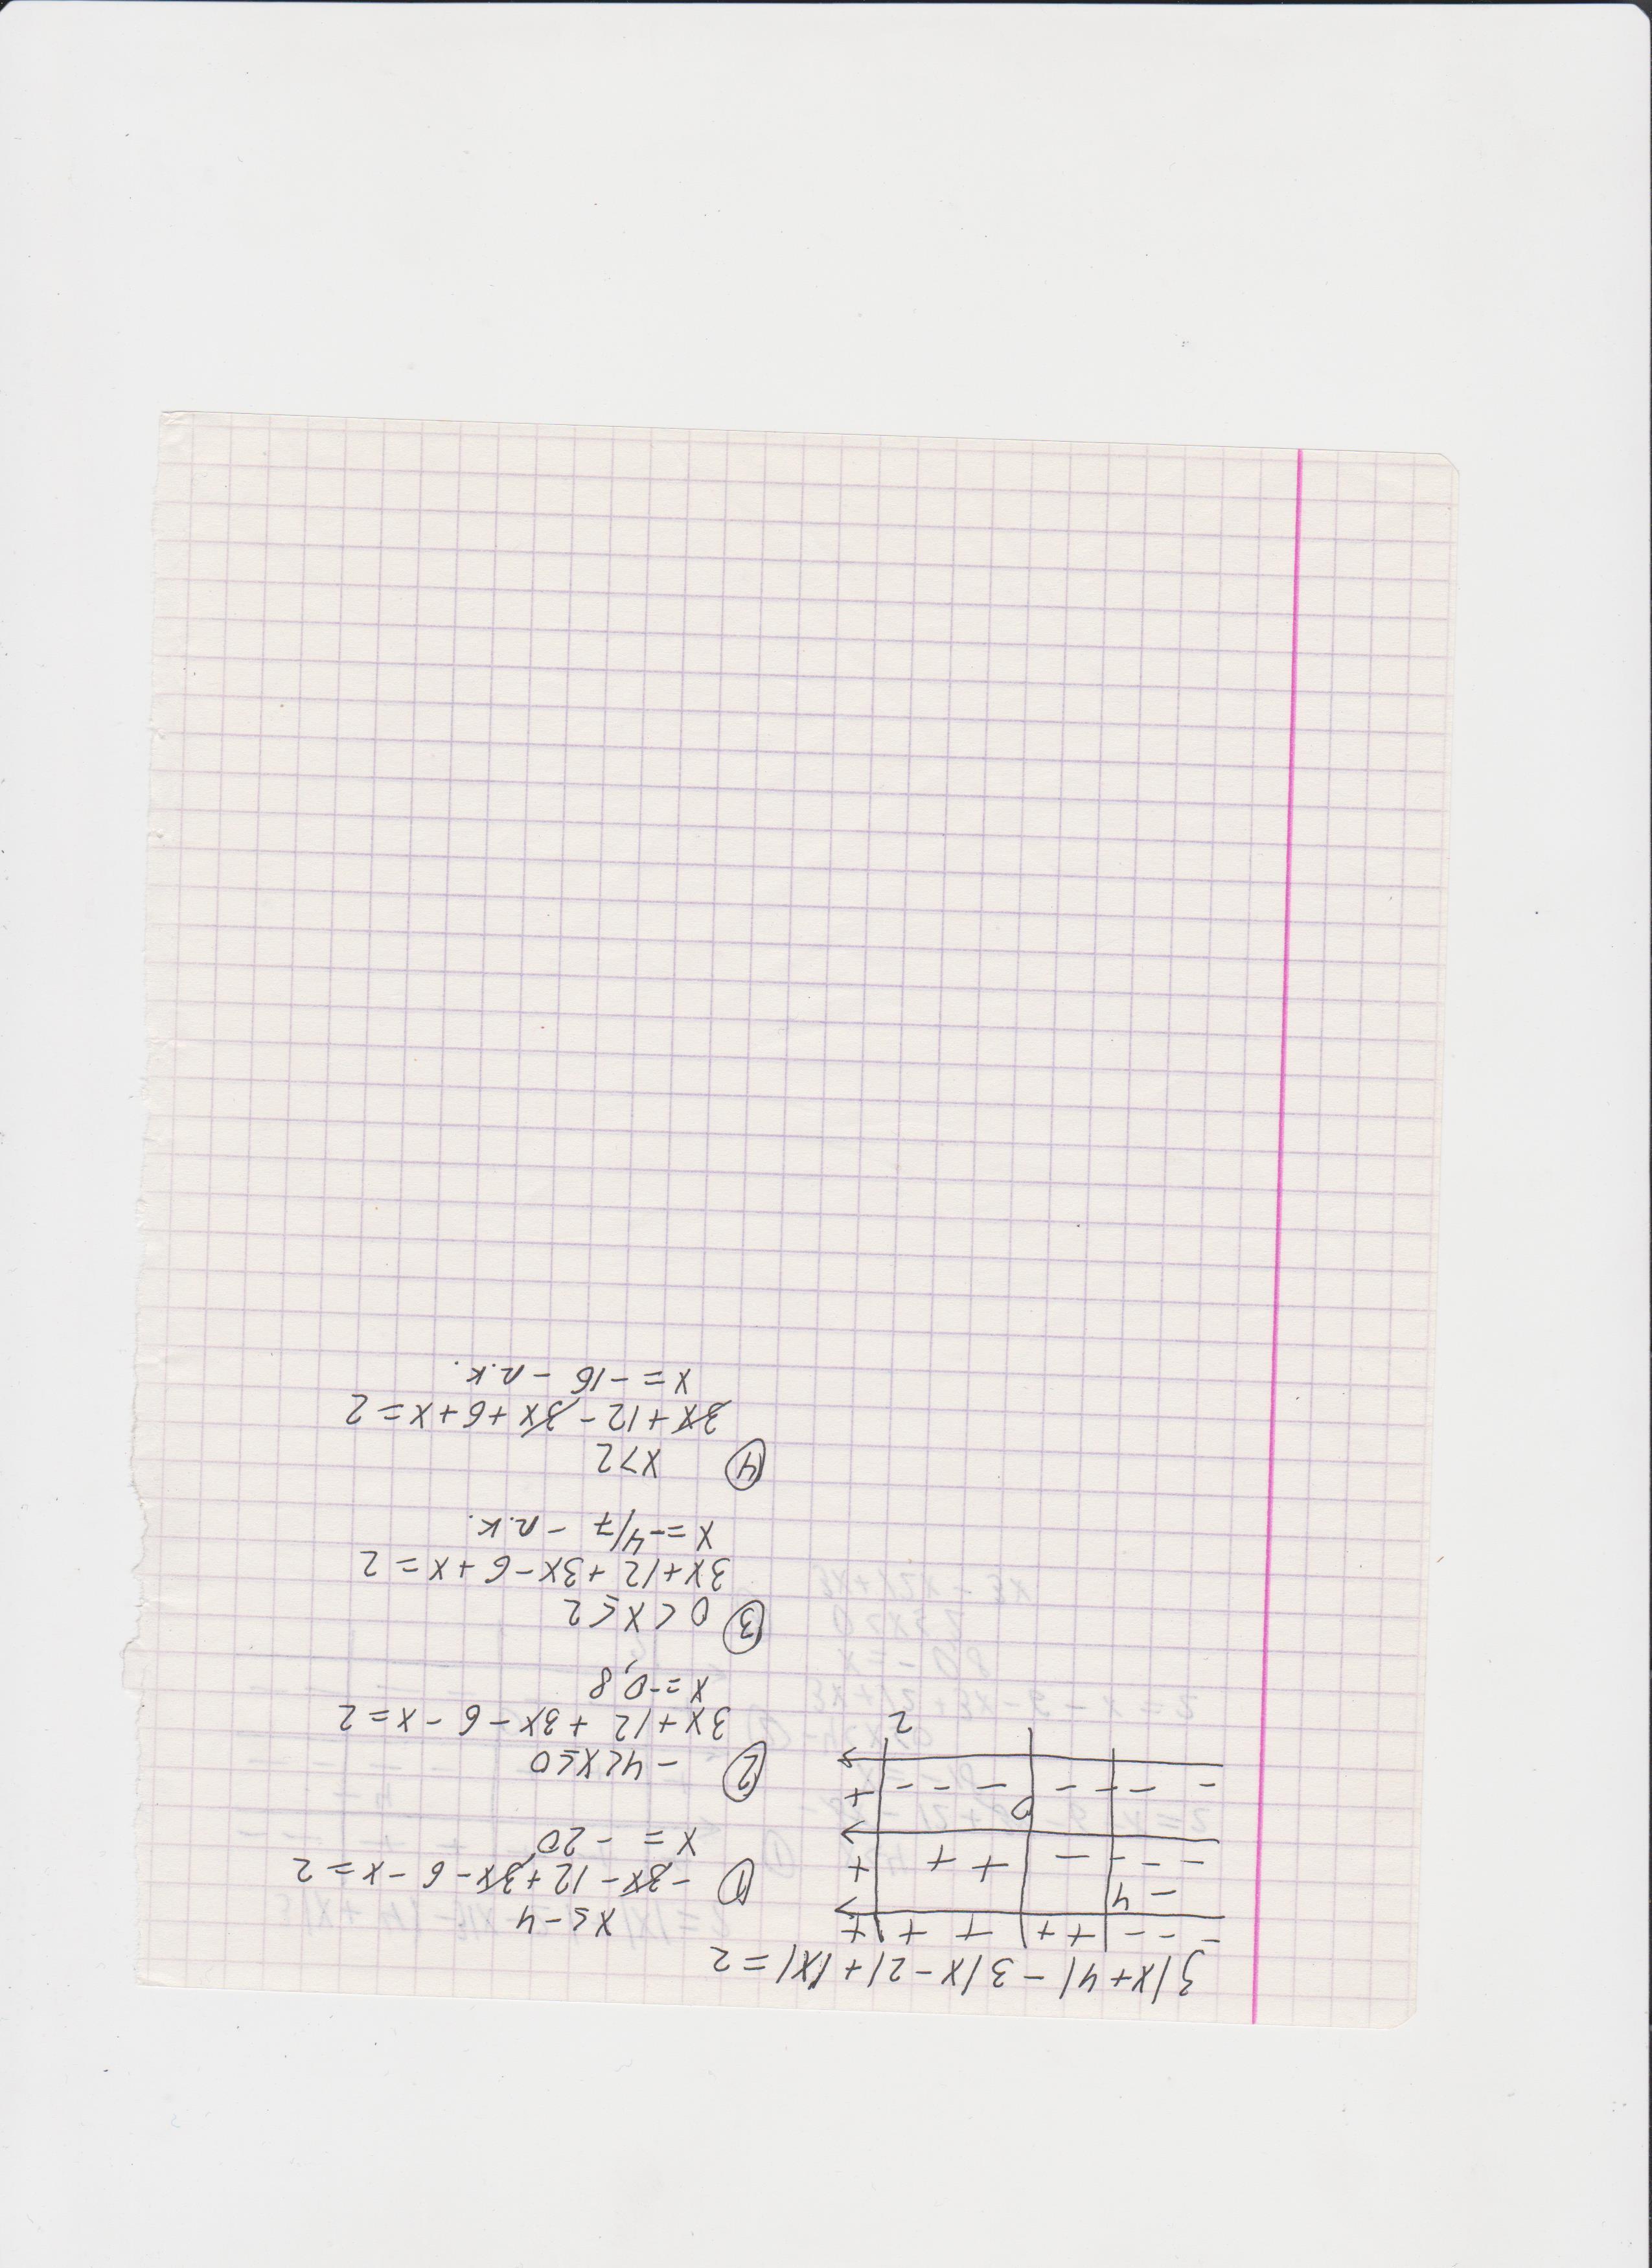 3|x+4| - 3|x-2| + |x| = 2
- - - + + + + + +
- 4
- - - - + + +
0
- - - - - - - +
2
x ≤ -4
① -3x - 12 + 3x - 6 - x = 2
x = -20
② -4 < x ≤ 0
3x + 12 + 3x - 6 - x = 2
x = -0,8
③ 0 < x ≤ 2
3x + 12 + 3x - 6 + x = 2
x = -4/7 - п.к.
④ x > 2
3x + 12 - 3x + 6 + x = 2
x = -16 - п.к.